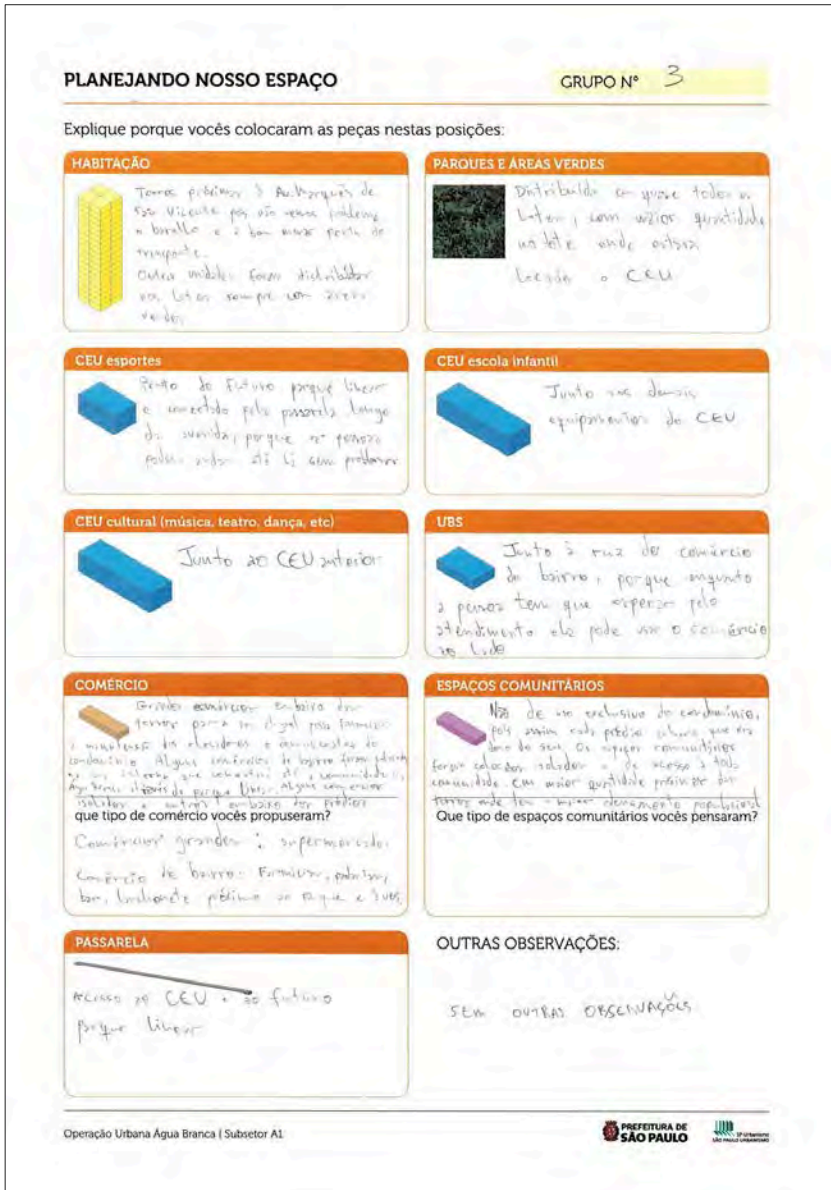 PLANEJANDO NOSSO ESPAÇO
GRUPO Nº 3
Explique porque vocês colocaram as peças nestas posições:
HABITAÇÃO
Torres próximas à Av. Marquês de
São Vicente pois não temos problema
o barulho e é bom morar perto de
transporte.
Outras unidades foram distribuídas
nos lotes sempre com áreas
verdes
PARQUES E ÁREAS VERDES
Distribuído em quase todos os
Lotes, com maior quantidade
no lote onde estará
locado o CEU
CEU esportes
Perto do Futuro parque linear
e conectado pela passarela longe
da avenida, porque as pessoas
podem andar até lá sem problemas
CEU escola infantil
Junto aos demais
equipamentos do CEU
CEU cultural (música, teatro, dança, etc)
Junto ao CEU anterior
UBS
Junto à rua de comércio
do bairro, porque enquanto
a pessoa tem que esperar pelo
atendimento ela pode usar o comércio
ao lado
COMÉRCIO
Grandes comércios embaixo das
torres para
a manutenção dos elevadores e
condomínio Alguns comércios de bairro foram
a comunidade
através do parque linear. Alguns comércios
isolados e outros embaixo dos prédios
que tipo de comércio vocês propuseram?
Comércios grandes: supermercado.
Comércio de bairro: Farmácia, padaria,
bar, lanchonete próximo ao parque e UBS
ESPAÇOS COMUNITÁRIOS
Não de uso exclusivo do condomínio,
pois assim cada prédio que era
dono do seu. Os espaços comunitários
foram colocados isolados e de acesso a toda
comunidade. Em maior quantidade próximos das
torres onde tem o maior adensamento populacional
Que tipo de espaços comunitários vocês pensaram?
PASSARELA
Acesso ao CEU e ao futuro
parque linear
OUTRAS OBSERVAÇÕES:
SEM OUTRAS OBSERVAÇÕES
Operação Urbana Água Branca | Subsetor A1
PREFEITURA DE
SÃO PAULO
SP Urbanismo
SÃO PAULO URBANISMO